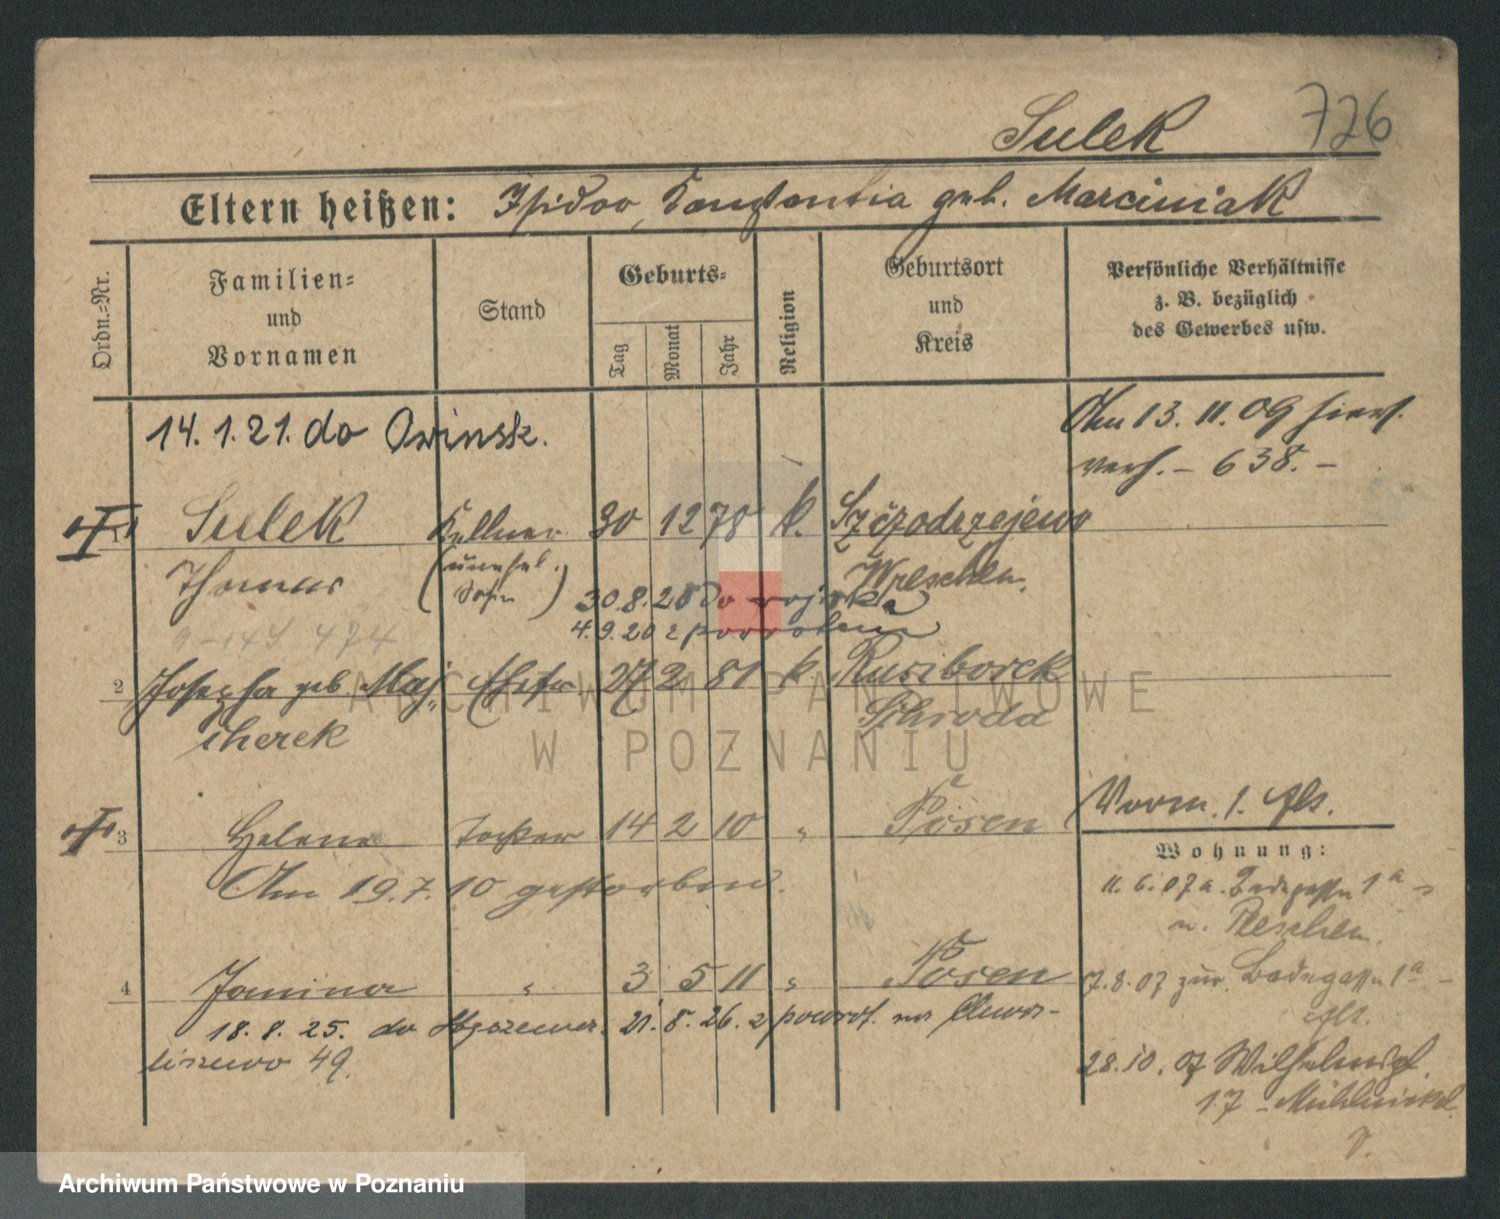 Sulek 726
Eltern heißen: Isidor, Konstantia geb. Marciniak
Ordn.-Nr.
Familien-
und
Vornamen
Stand
Geburts-
Tag
Monat
Jahr
Religion
Geburtsort
und
Kreis
Persönliche Verhältnisse
z. B. bezüglich
des Gewerbes usw.
14. 1. 21. do Owinsk.
Am 13. 11. 09 hier
verh. – 638. –
1 Sulek Kellner 30 12 78 k. Szczodrzejewo
Thomas (unehel. Sohn) Wreschen
30.8.20 do wojska
4.9.20 z powrotem
474
2 Josepha geb. Maj- Ehefr 27 2 81 k Rusiborek
cherek Schroda
3 Helene Tochter 14 2 10 " Posen
Am 19.7.10 gestorben.
Vorm. 1.
Wohnung:
11.6.07 a. Badegasse 1a
n. Pleschen.
4 Janina " 3 5 11 " Posen
7.8.07 zur. Badegasse 1a –
18. 8. 25. do 21. 8. 26. z powrot. na
49.
28.10.07 Wilhelmspl.
17 –
Archiwum Państwowe w Poznaniu
ARCHIWUM PAŃSTWOWE
W POZNANIU